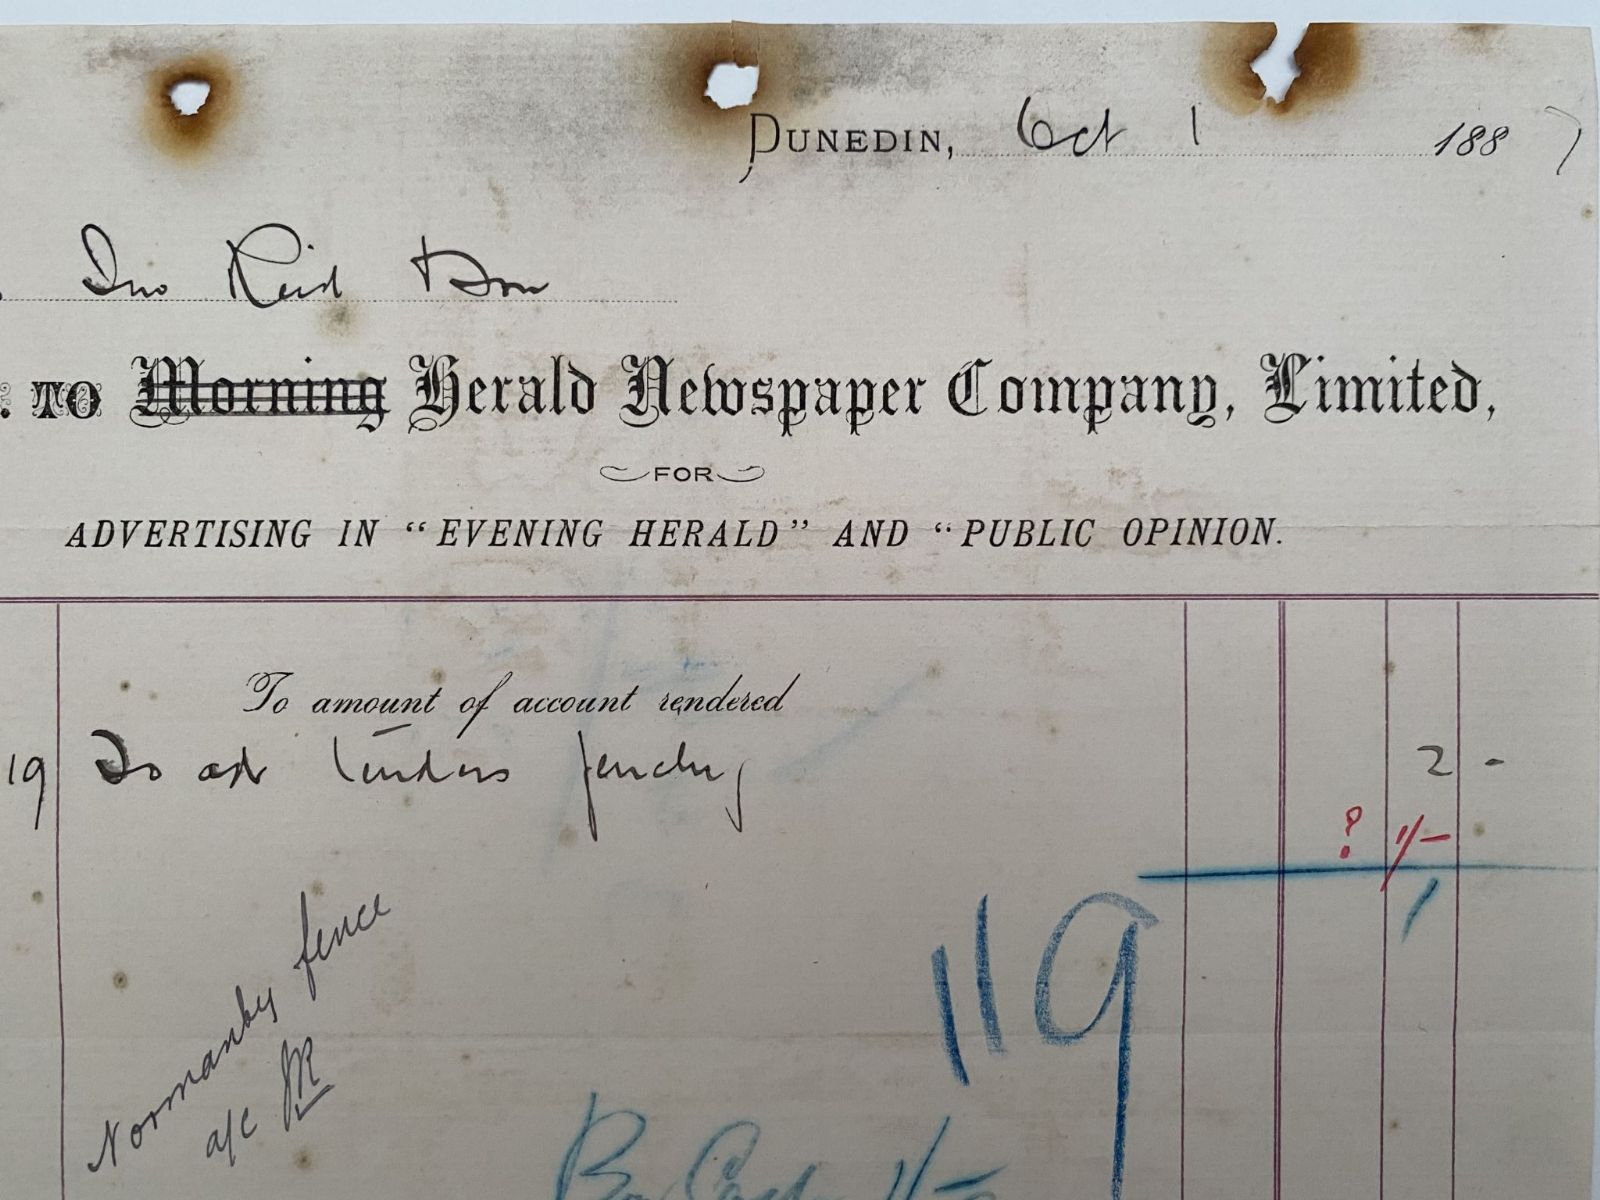 DUNEDIN, Oct 1 1887
Jno Reid & Son
TO Morning Herald Newspaper Company, Limited,
FOR
ADVERTISING IN “EVENING HERALD” AND “PUBLIC OPINION.
To amount of account rendered
19 To ad tenders fencing 2 -
? 1/-
1
119
Normanby fence
a/c JR
By Cash 1/-